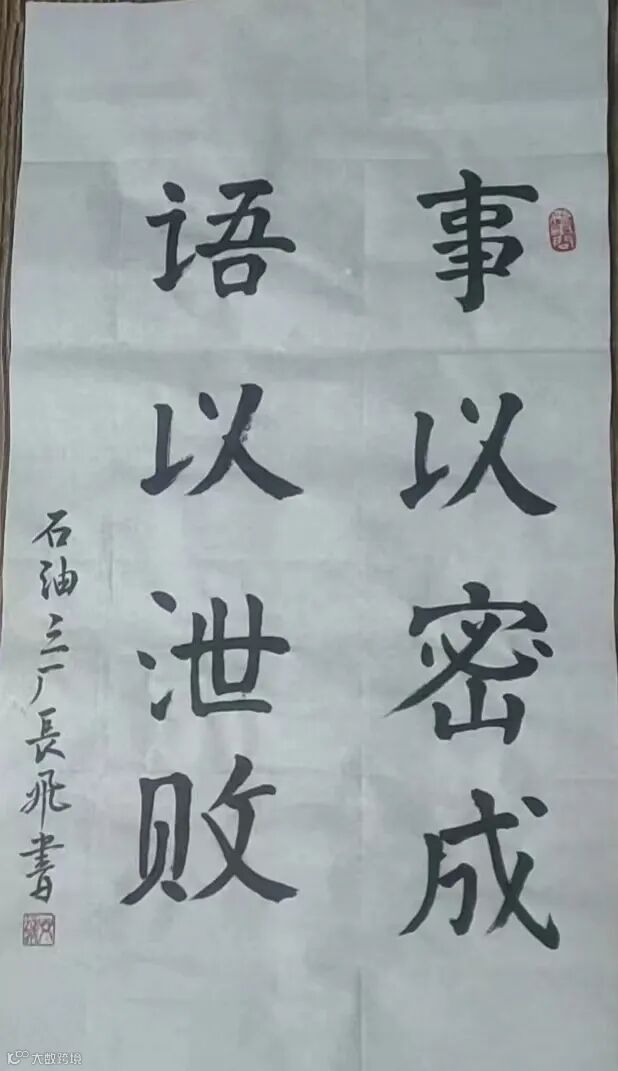 事以密成
语以泄败
石油三厂長飛書
大数跨境